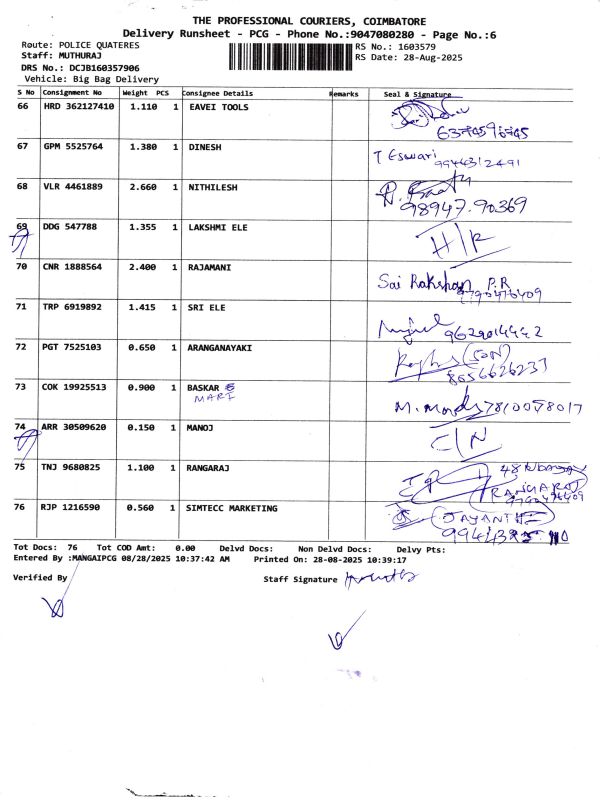 THE PROFESSIONAL COURIERS, COIMBATORE
Delivery Runsheet - PCG - Phone No.:9047080280 - Page No.:6
Route: POLICE QUATERES RS No.: 1603579
Staff: MUTHURAJ RS Date: 28-Aug-2025
DRS No.: DCJB160357906
Vehicle: Big Bag Delivery
S No Consignment No Weight PCS Consignee Details Remarks Seal & Signature
66 HRD 362127410 1.110 1 EAVEI TOOLS
67 GPM 5525764 1.380 1 DINESH T Eswari 9944312491
68 VLR 4461889 2.660 1 NITHILESH 98947.90369
69 DDG 547788 1.355 1 LAKSHMI ELE H/R
70 CNR 1888564 2.400 1 RAJAMANI Sai Rakshan P.R
9790476409
71 TRP 6919892 1.415 1 SRI ELE
72 PGT 7525103 0.650 1 ARANGANAYAKI (SON)
8056626237
73 COK 19925513 0.900 1 BASKAR
MARI
7810058017
74 ARR 30509620 0.150 1 MANOJ C/N
75 TNJ 9680825 1.100 1 RANGARAJ RANGARAJ
76 RJP 1216590 0.560 1 SIMTECC MARKETING
Tot Docs: 76 Tot COD Amt: 0.00 Delvd Docs: Non Delvd Docs: Delvy Pts:
Entered By :MANGAIPCG 08/28/2025 10:37:42 AM Printed On: 28-08-2025 10:39:17
Verified By Staff Signature